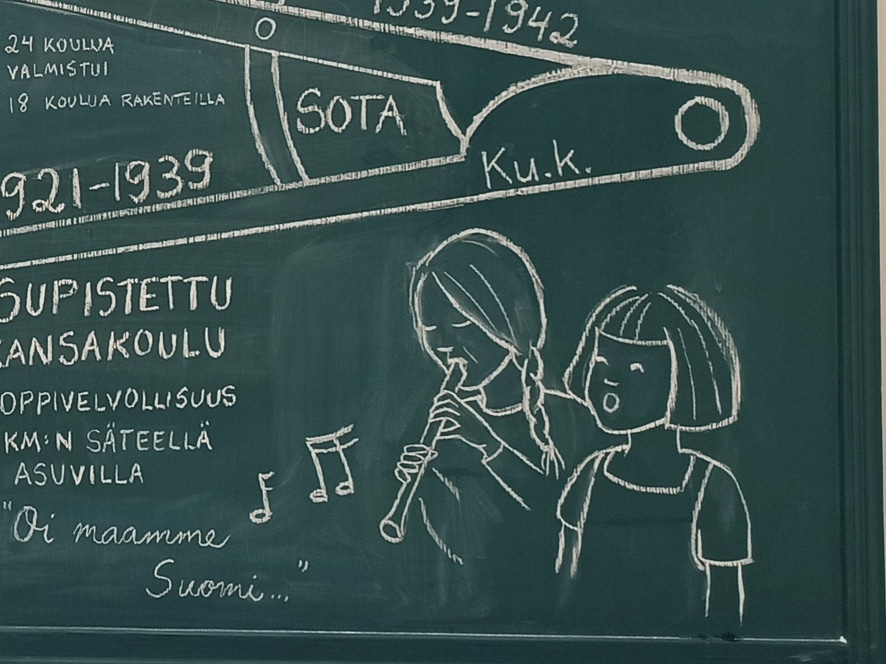 1939-1942
24 KOULUA
VALMISTUI
18 KOULUA RAKENTEILLA
SOTA
Ku.k.
921-1939
SUPISTETTU
KANSAKOULU
OPPIVELVOLLISUUS
KM:N SÄTEELLÄ
ASUVILLA
"Oi maamme
Suomi..."